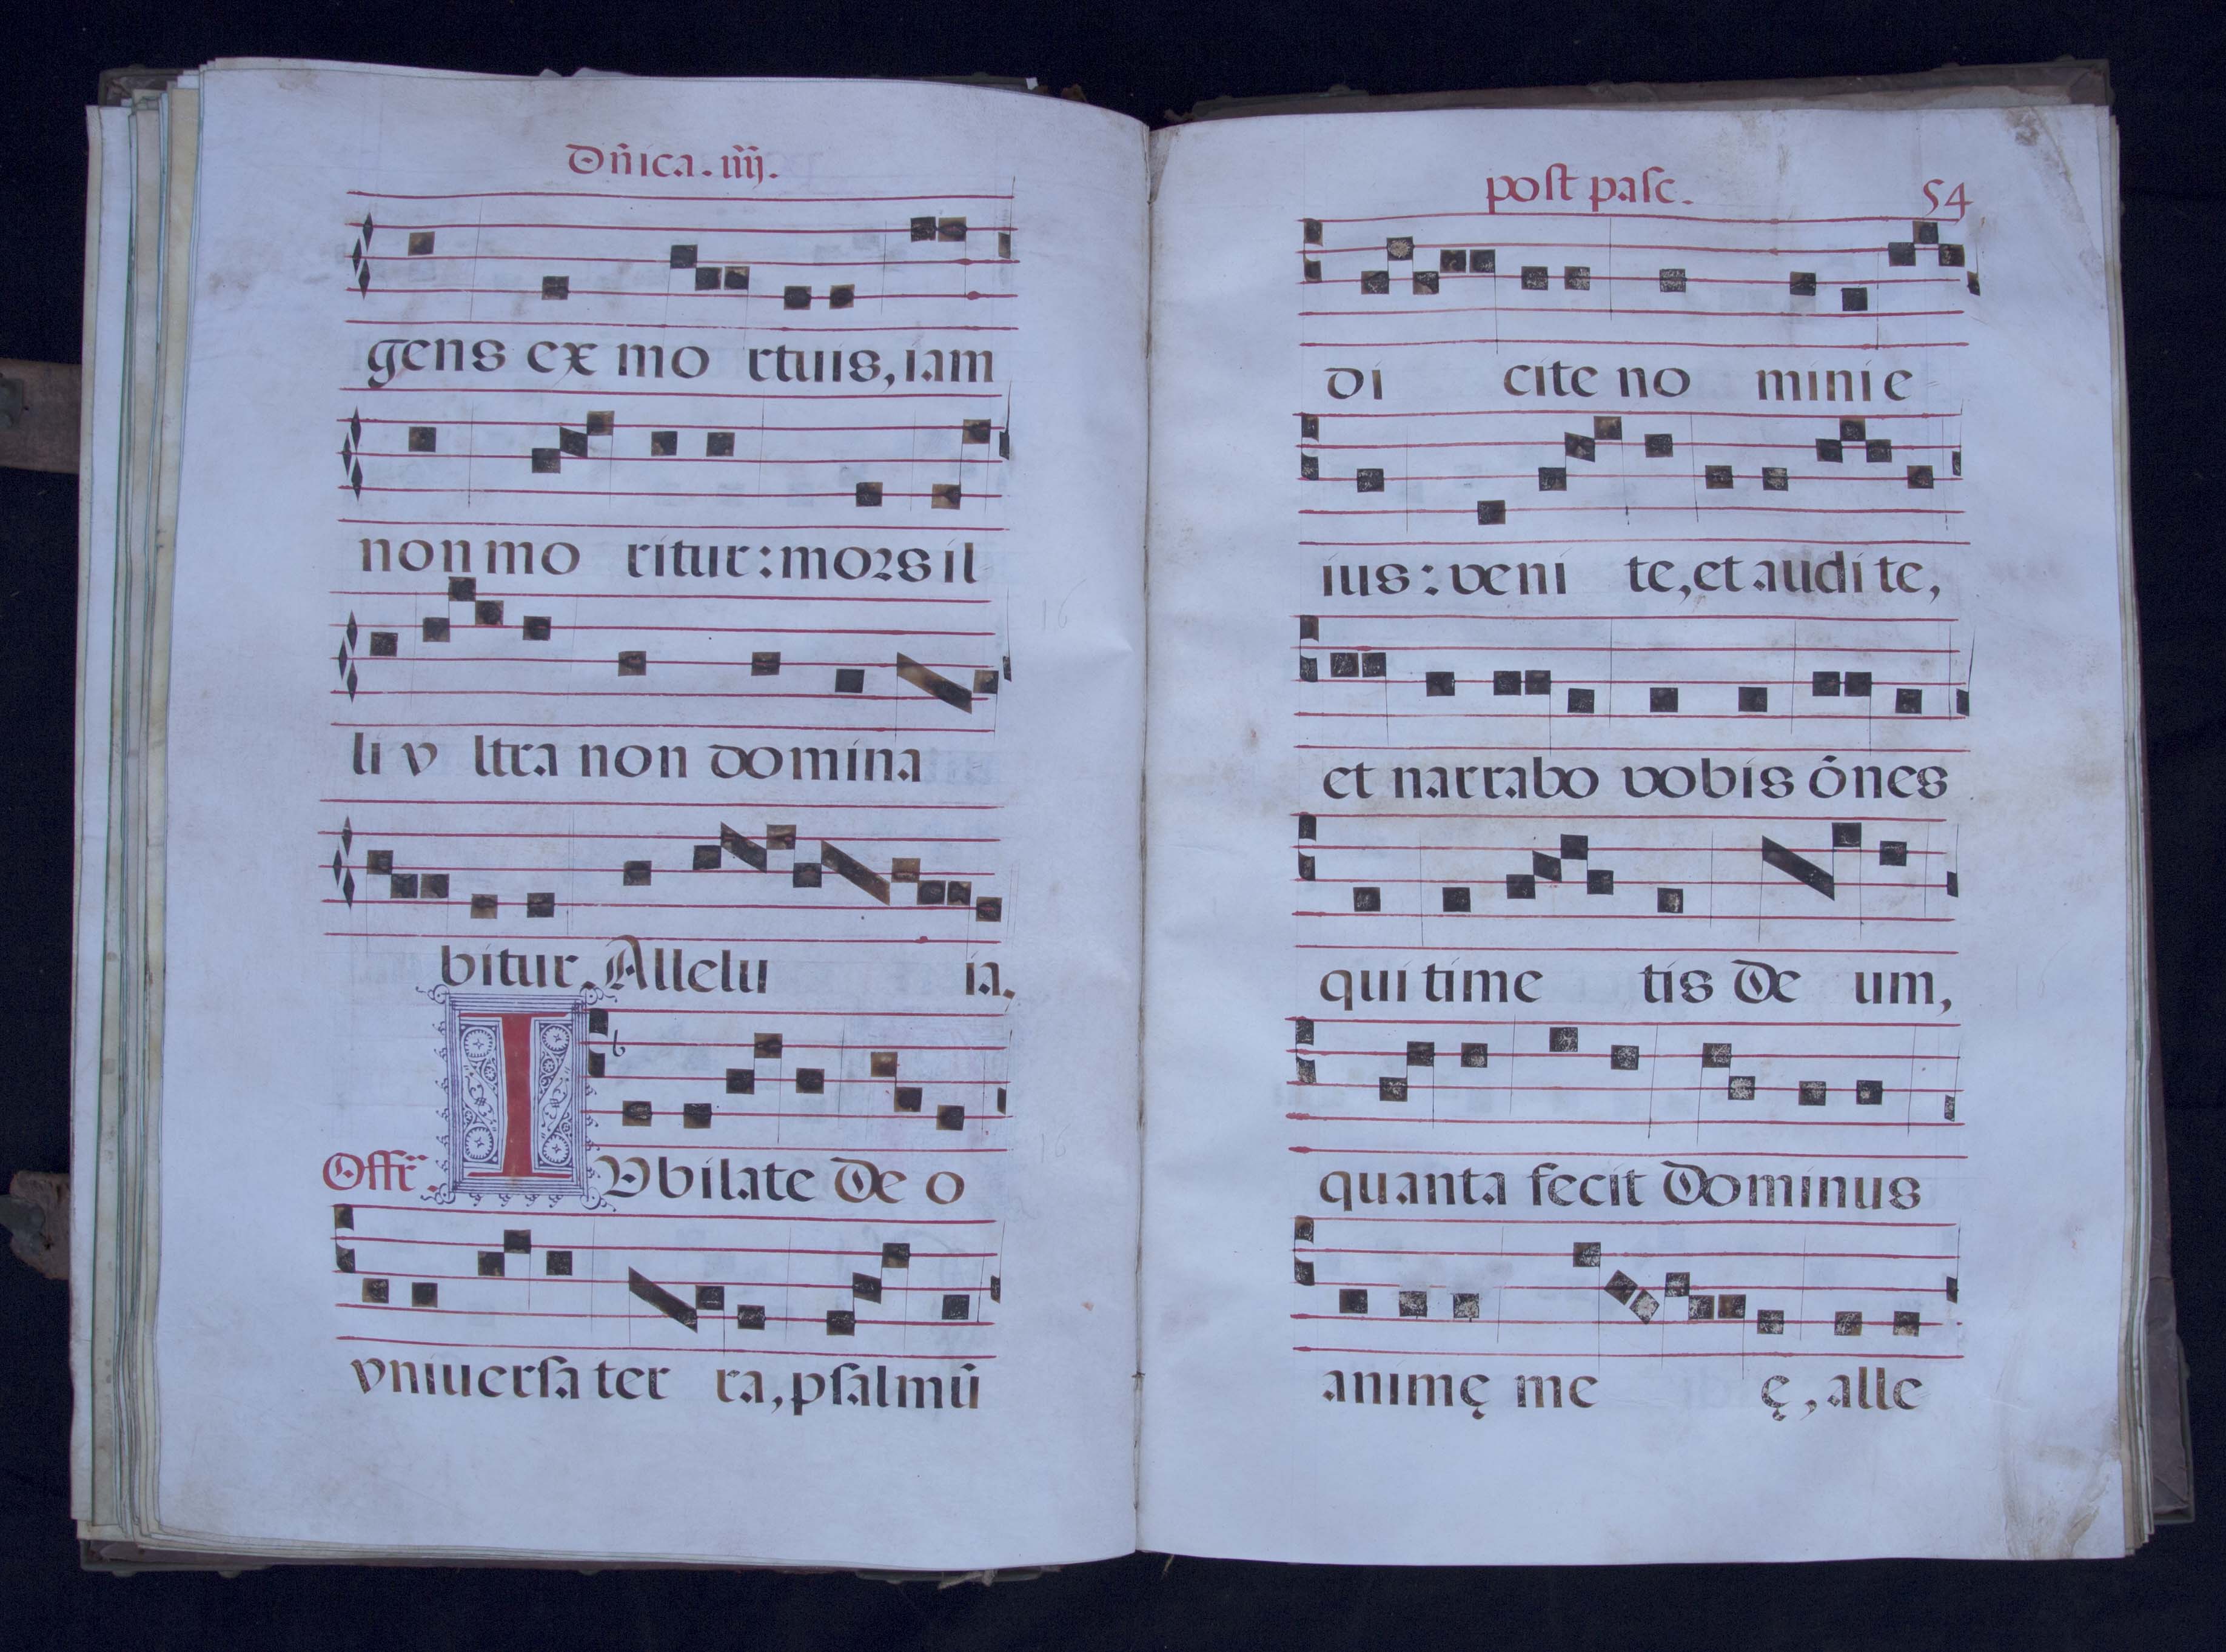 Dñica. iiij.
gens ex mo rtuis, iam
non mo ritur: mors il
li v ltra non domina
bitur. Allelu ia.
Offr̃. IVbilate Deo
vniuersa ter ra, psalmũ
post pasc. 54
di cite no mini e
ius: veni te, et audi te,
et narrabo vobis õnes
qui time tis De um,
quanta fecit Dominus
animę me ę, alle